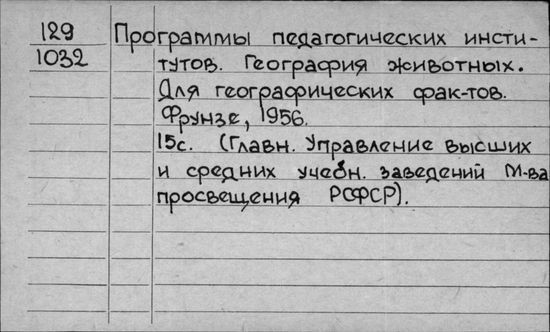 129 Программы педагогических инсти-
1032 тутов. География животных.
Для географических фак-тов.
Фрунзе, 1956.
15с. (Главн. Управление высших
и средних учебн. заведений М-ва
просвещения РСФСР).